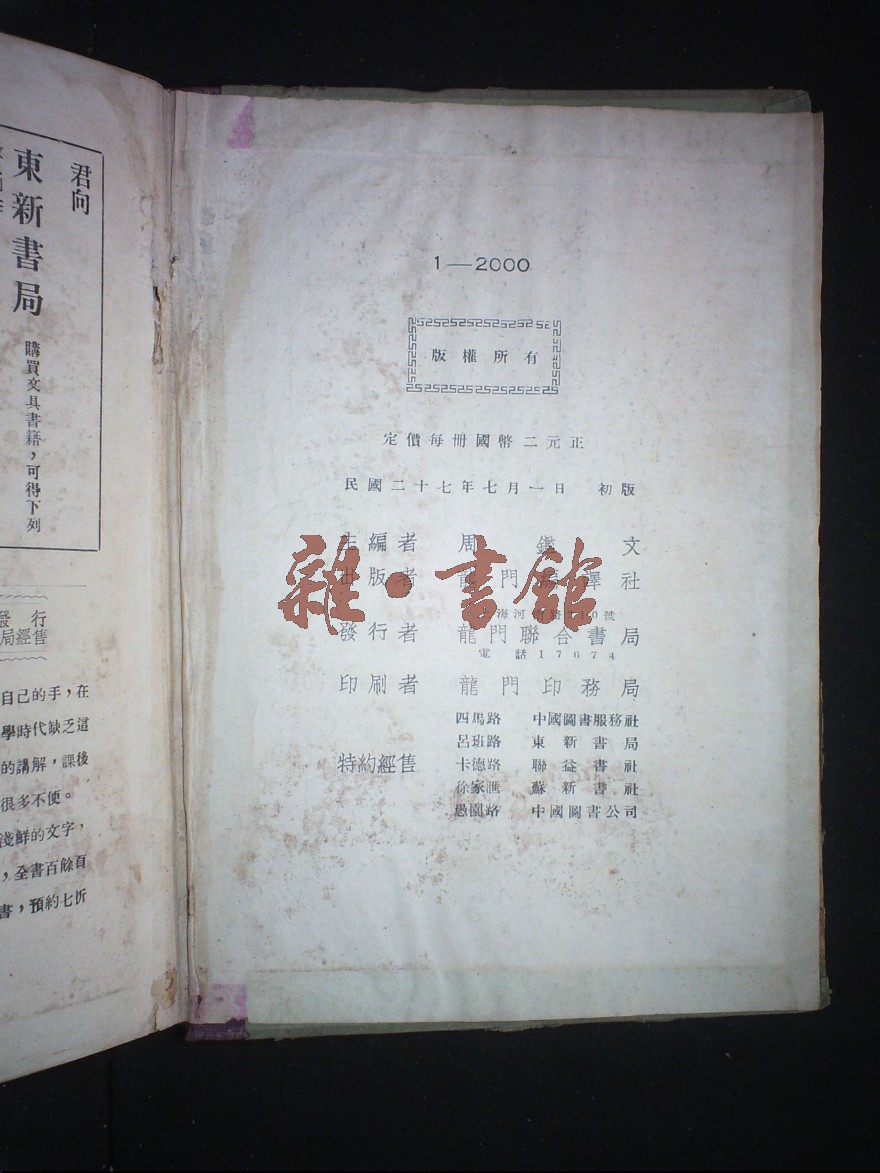 君向
東新書局
購買文具書籍，可得下列
發行
局經售
自己的手，在
學時代缺乏這
的講解，課後
很多不便。
淺鮮的文字，
，全書百餘頁
書，預約七折
1—2000
版權所有
定價每冊國幣二元正
民國二十七年七月一日 初版
主編者 周鑑文
出版者 龍門編譯社
上海河南路 號
發行者 龍門聯合書局
電話17674
印刷者 龍門印務局
特約經售
四馬路 中國圖書服務社
呂班路 東新書局
卡德路 聯益書社
徐家匯 蘇新書社
愚園路 中國圖書公司
雜·書館